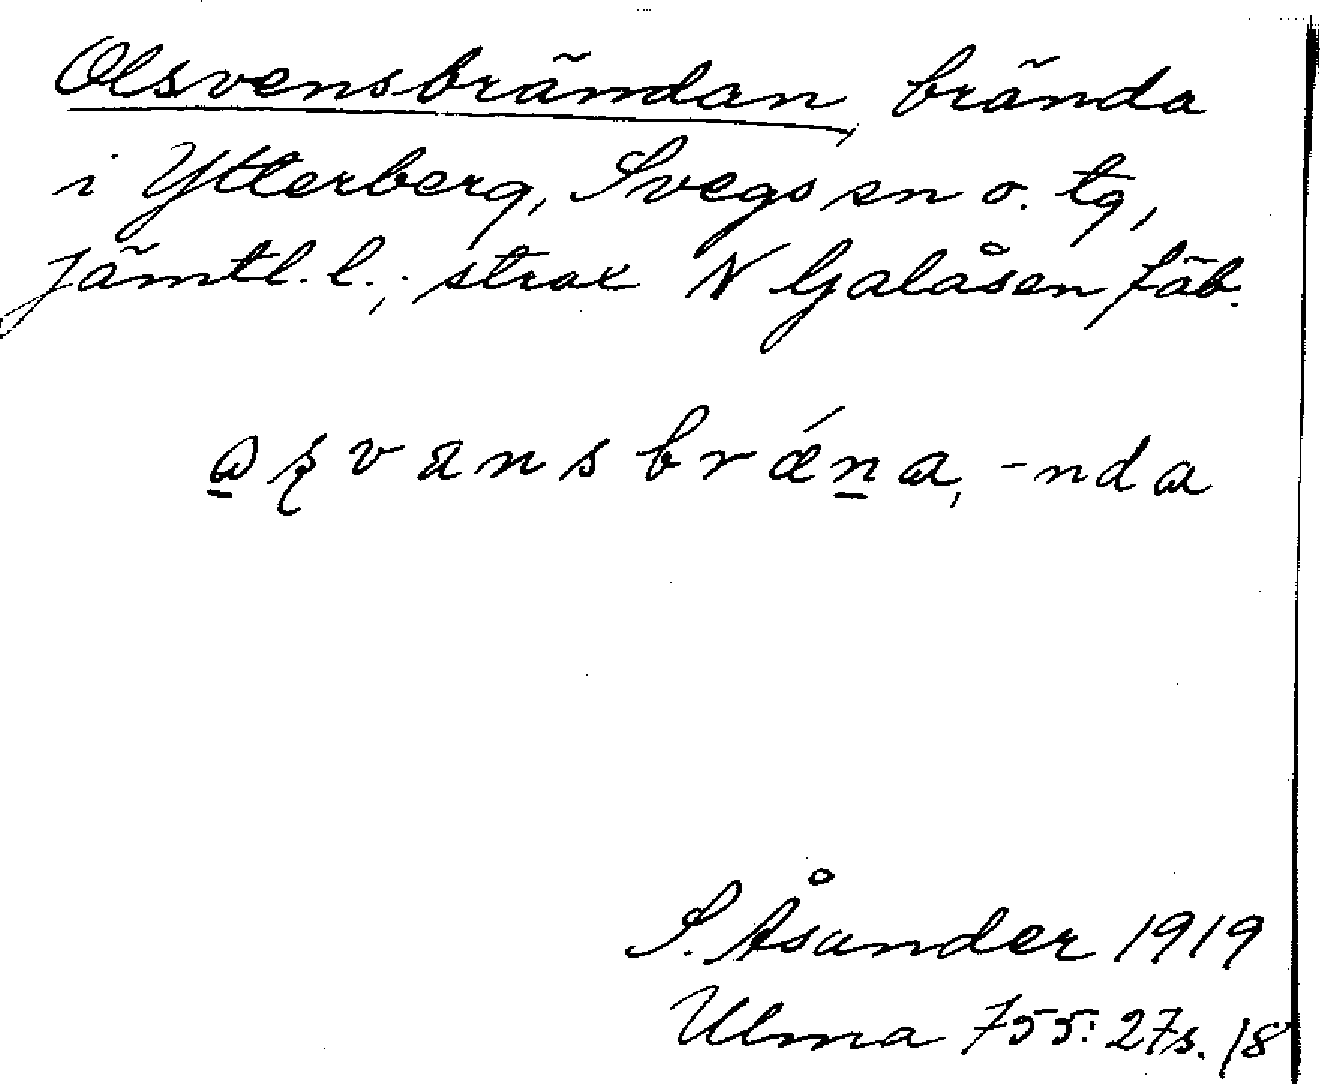 Olsvensbrändan, brända
i Ytterberg, Svegs sn o. tg,
Jämtl. l.; strax N Galåsen fäb.
-nda
S. Åsander 1919
Ulma 755: 27 s. 18